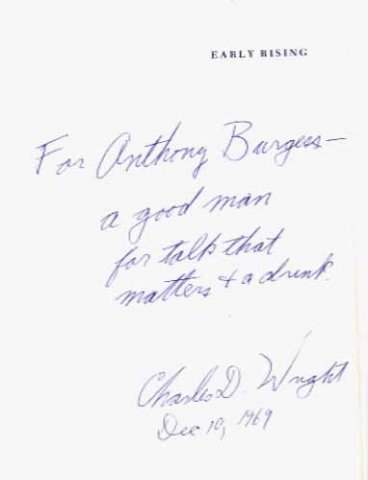 EARLY RISING
For Anthony Burgess—
a good man
for talk that
matters + a drink.
Charles D. Wright
Dec 10, 1969